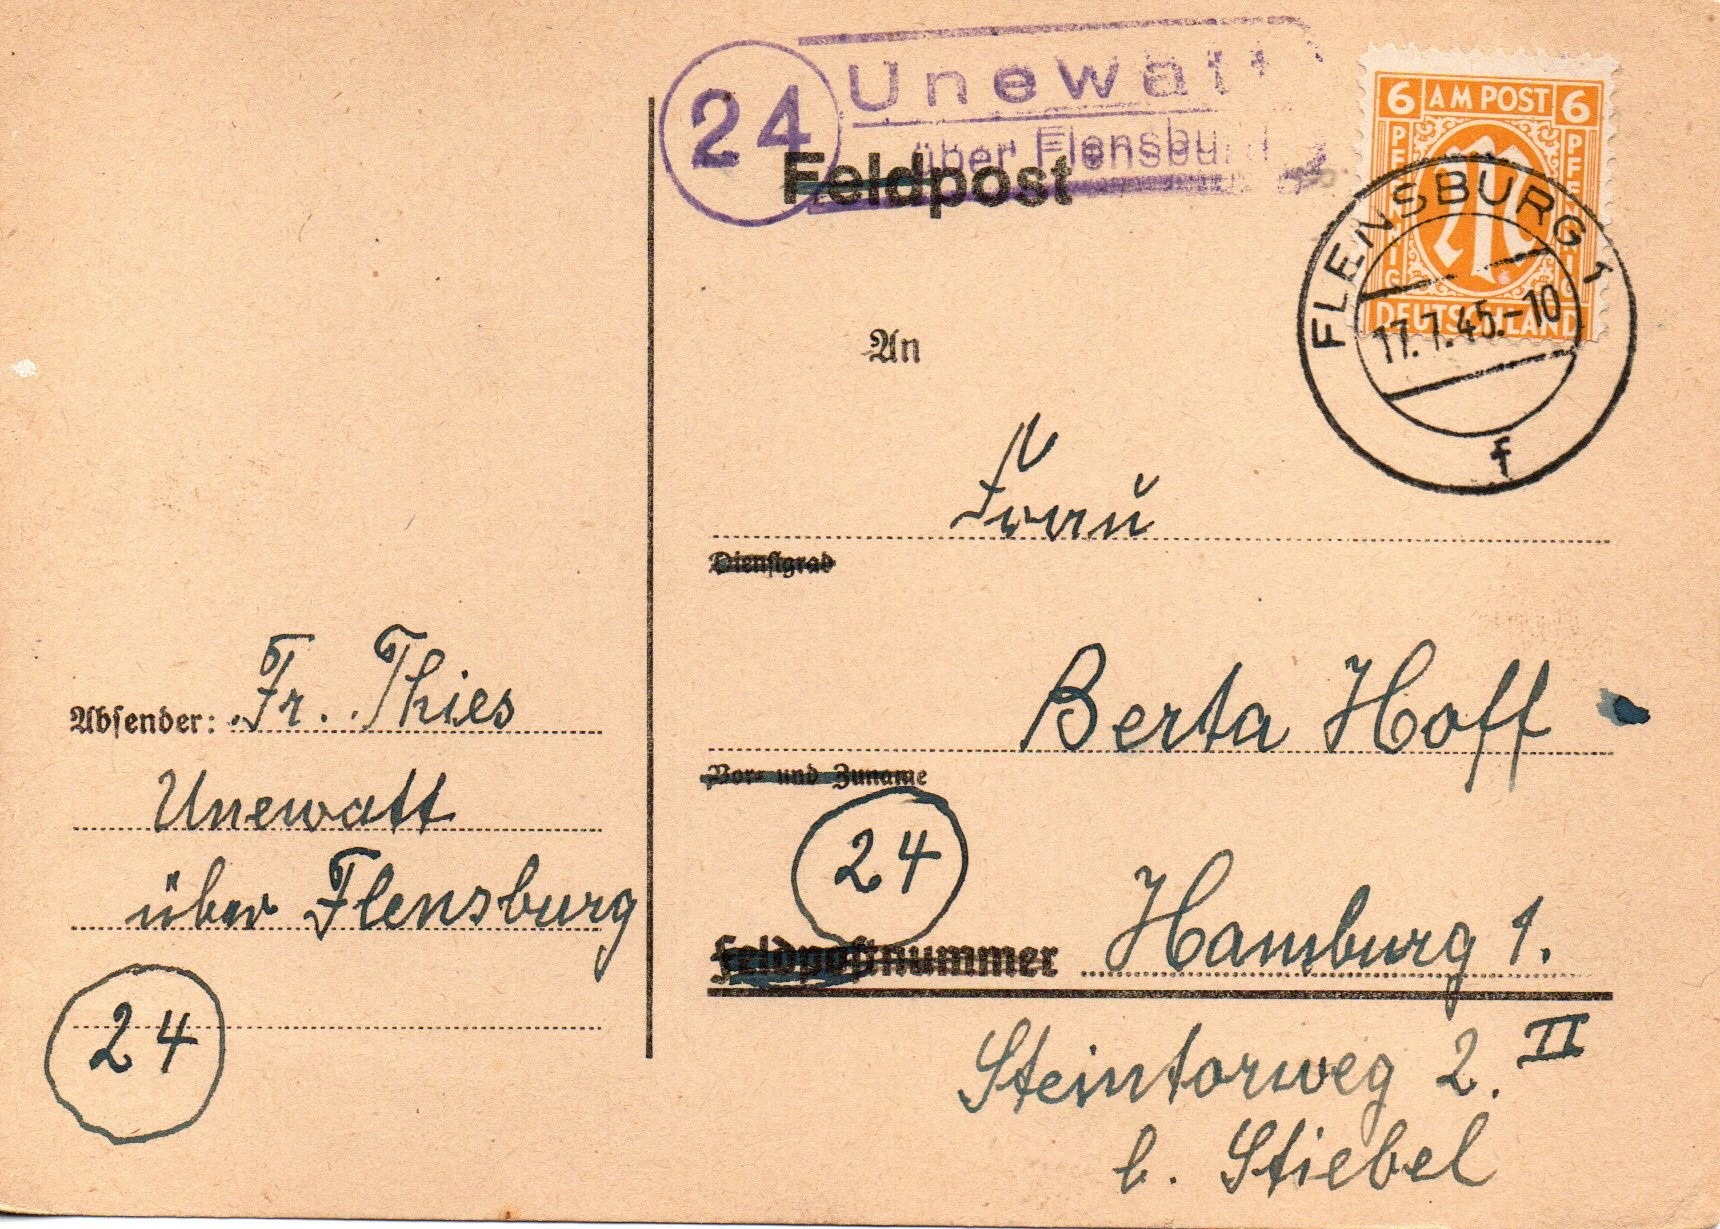 24 Unewatt
über Flensburg
6 AM POST 6
PFENNIG PFENNIG
DEUTSCHLAND
FLENSBURG 1
17.7.45.-10
f
Feldpost
An
Frau
Dienstgrad
Berta Hoff
Vor- und Zuname
24
Feldpostnummer Hamburg 1.
Steintorweg 2. II
b. Stiebel
Absender: Fr. Thies
Unewatt
über Flensburg
24